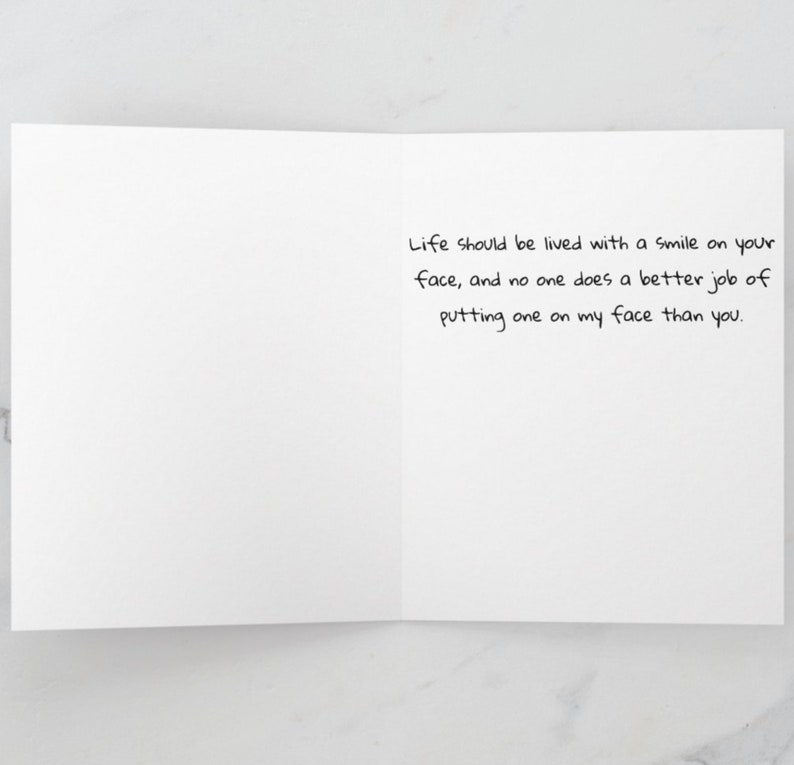 Life should be lived with a smile on your
face, and no one does a better job of
putting one on my face than you.